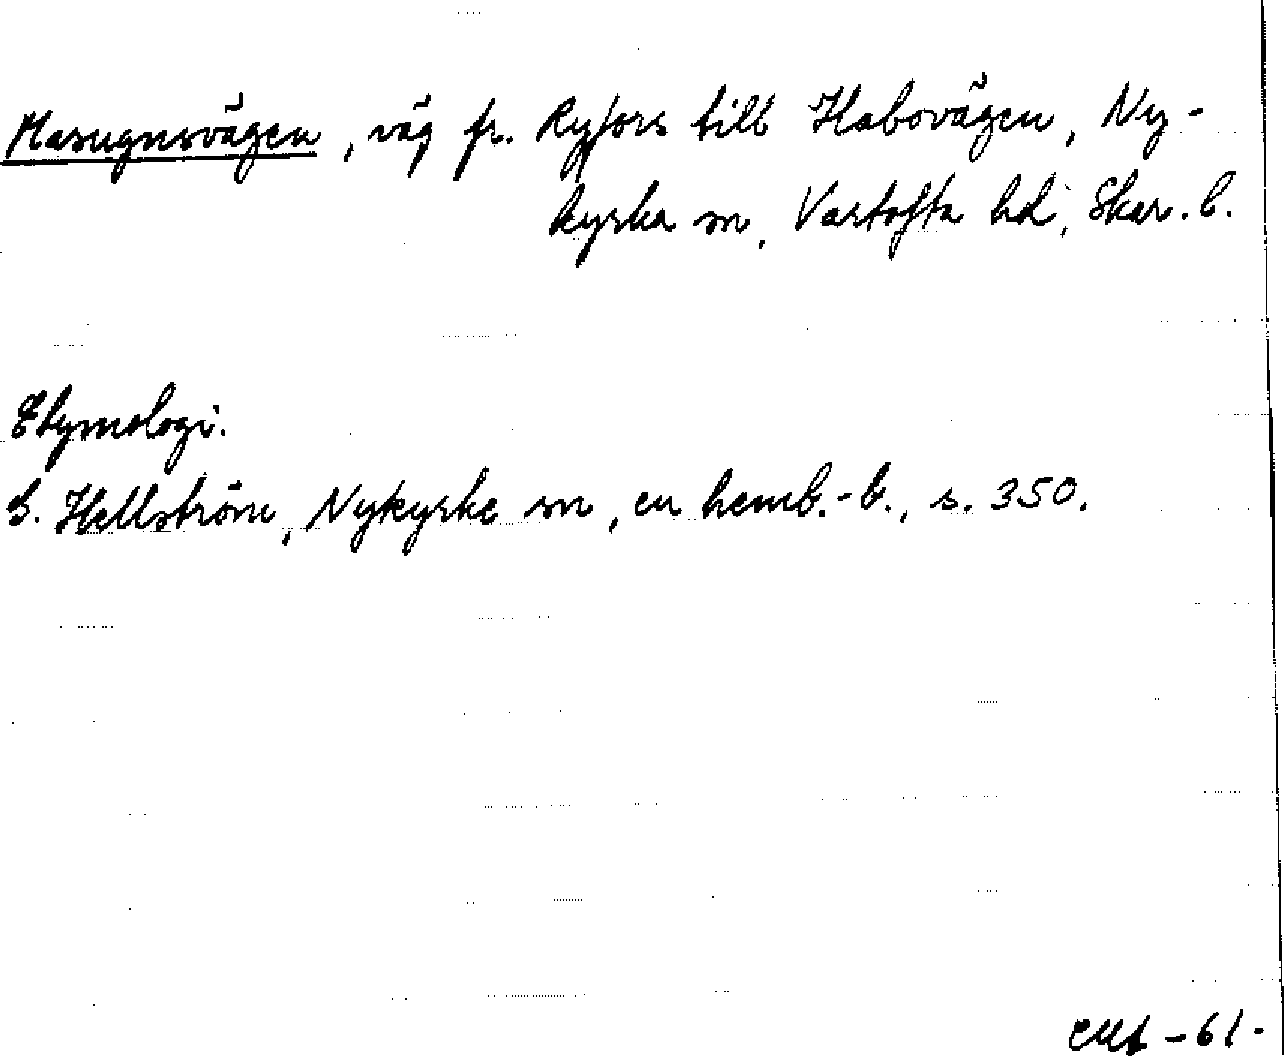 Masugnsvägen, väg fr. Ryfors till Habovägen, Ny-
kyrka sn, Vartofta hd, Skar. l.
Etymologi.
S. Hellström, Nykyrke sn, en hemb.-b., s. 350.
-61.